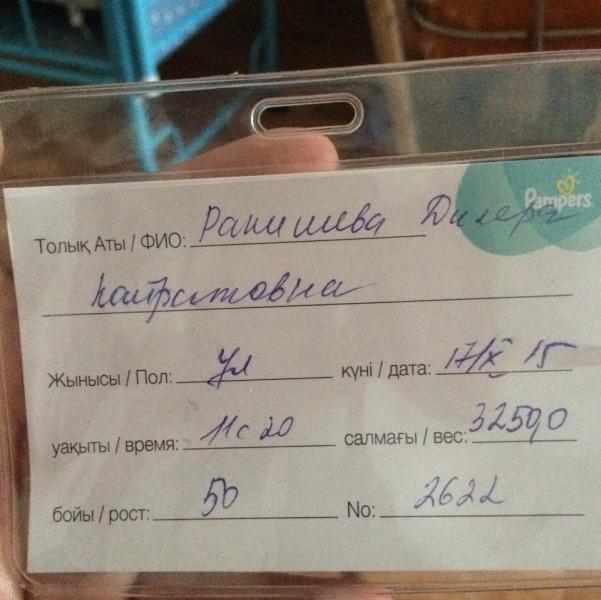 Pampers
Толық Аты / ФИО: Ракишева Дилера
Кайратовна
Жынысы / Пол: Ұл күні / дата: 17/X 15
уақыты / время: 11с 20 салмағы / вес: 3250,0
бойы / рост: 50 No: 2622